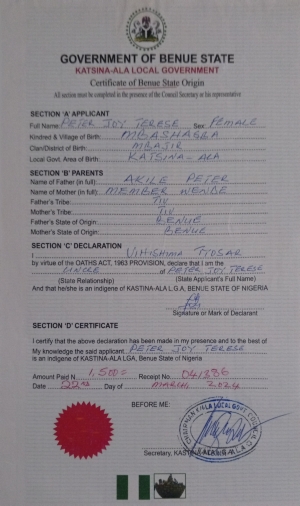 GOVERNMENT OF BENUE STATE
KATSINA-ALA LOCAL GOVERNMENT
Certificate of Benue State Origin
All section must be completed in the presence of the Council Secretary or his representative
SECTION 'A' APPLICANT
Full Name: PETER JOY TERESE Sex: FEMALE
Kindred & Village of Birth: MBASHAGBA
Clan/District of Birth: MBAJIR
Local Govt. Area of Birth: KATSINA-ALA
SECTION 'B' PARENTS
Name of Father (in full): AKILE PETER
Name of Mother (in full): MEMBER WENDE
Father's Tribe: TIV
Mother's Tribe: TIV
Father's State of Origin: BENUE
Mother's State of Origin: BENUE
SECTION 'C' DECLARATION
I VIHISHIMA TYOSAR
by virtue of the OATHS ACT, 1963 PROVISION, declare that I am the
UNCLE of PETER JOY TERESE
(State Relationship) (State Applicant's Full Name)
And that he/she is an indigene of KASTINA-ALA L.G.A, BENUE STATE OF NIGERIA
Signature or Mark of Declarant
SECTION 'D' CERTIFICATE
I certify that the above declaration has been made in my presence and to the best of
My knowledge the said applicant PETER JOY TERESE
is an indigene of KASTINA-ALA LGA, Benue State of Nigeria
Amount Paid N 1,500= Receipt No. 041386
Date 22nd Day of MARCH, 2024
BEFORE ME:
Secretary, KAST